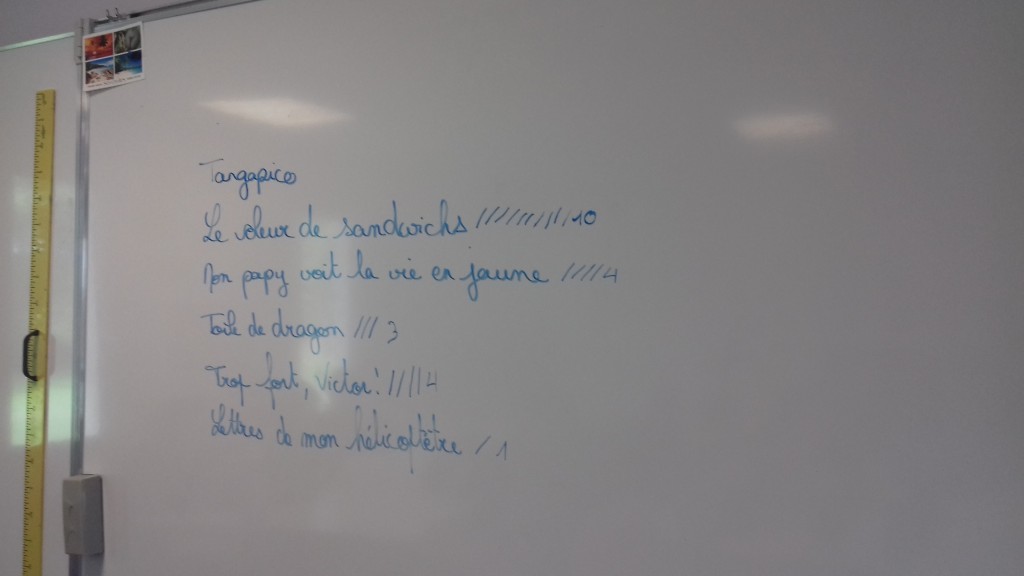 Tangapico
Le voleur de sandwichs ////////// 10
Mon papy voit la vie en jaune //// 4
Toile de dragon /// 3
Trop fort, Victor! //// 4
Lettres de mon hélicoptêtre / 1